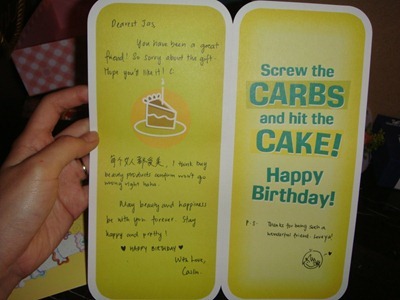 Dearest Jas,
You have been a great
friend! So sorry about the gift.
Hope you'd like it! C:
每个女人都爱美, I think these
beauty products confirm won't go
wrong right haha.
May beauty and happiness
be with you forever. Stay
happy and pretty!
♥ HAPPY BIRTHDAY ♥
With love,
Screw the
CARBS
and hit the
CAKE!
Happy
Birthday!
P.S. Thanks for being such a
wonderful friend. Love ya!